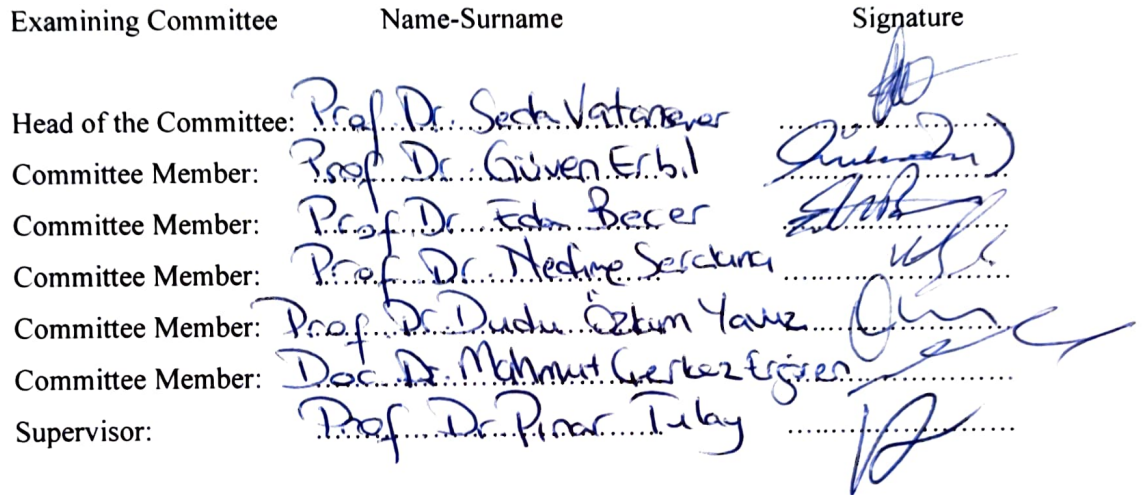 Examining Committee Name-Surname Signature
Head of the Committee: Prof Dr. Seda Vatansever
Committee Member: Prof Dr. Güven Erbil
Committee Member: Prof Dr. Eda Becer
Committee Member: Prof. Dr. Nedime Serakıncı
Committee Member: Prof. Dr. Dudu Özkum Yavuz
Committee Member: Doc. Dr. Mahmut Çerkez Ergören
Supervisor: Prof Dr Pınar Tulay